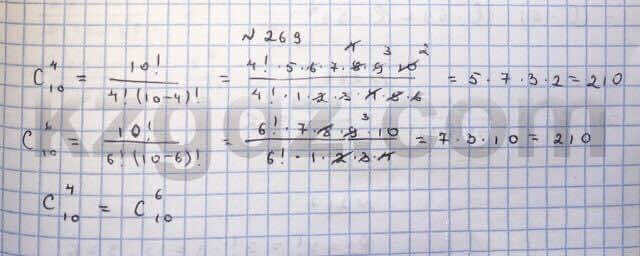 № 269
C₁₀⁴ = 10! / 4!(10-4)! = 4!·5·6·7·8·9·10 / 4!·1·2·3·4·5·6 = 5·7·3·2 = 210
C₁₀⁶ = 10! / 6!(10-6)! = 6!·7·8·9·10 / 6!·1·2·3·4 = 7·3·10 = 210
C₁₀⁴ = C₁₀⁶
kzgdz.com